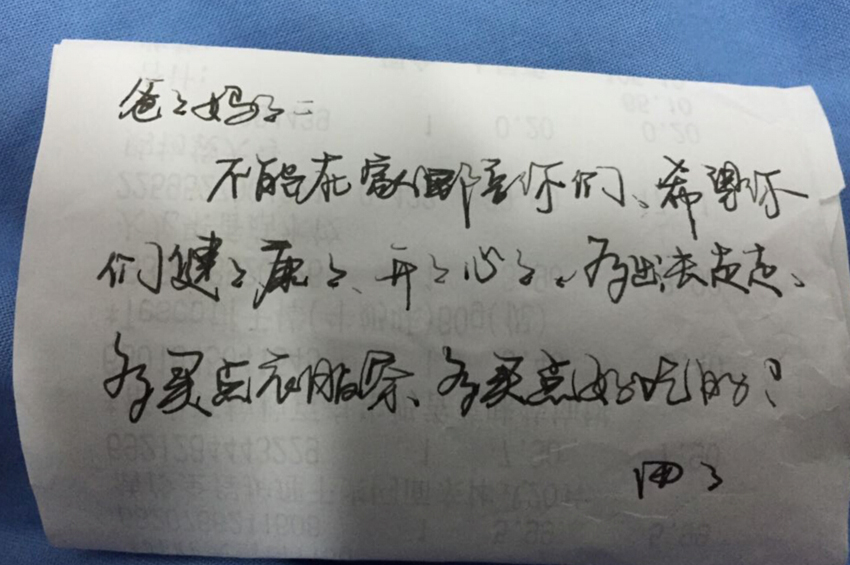 爸々妈々:
不能在家陪你们、希望你
们健々康々、开々心々。多出去走走、
多买点衣服穿、多买点好吃的!